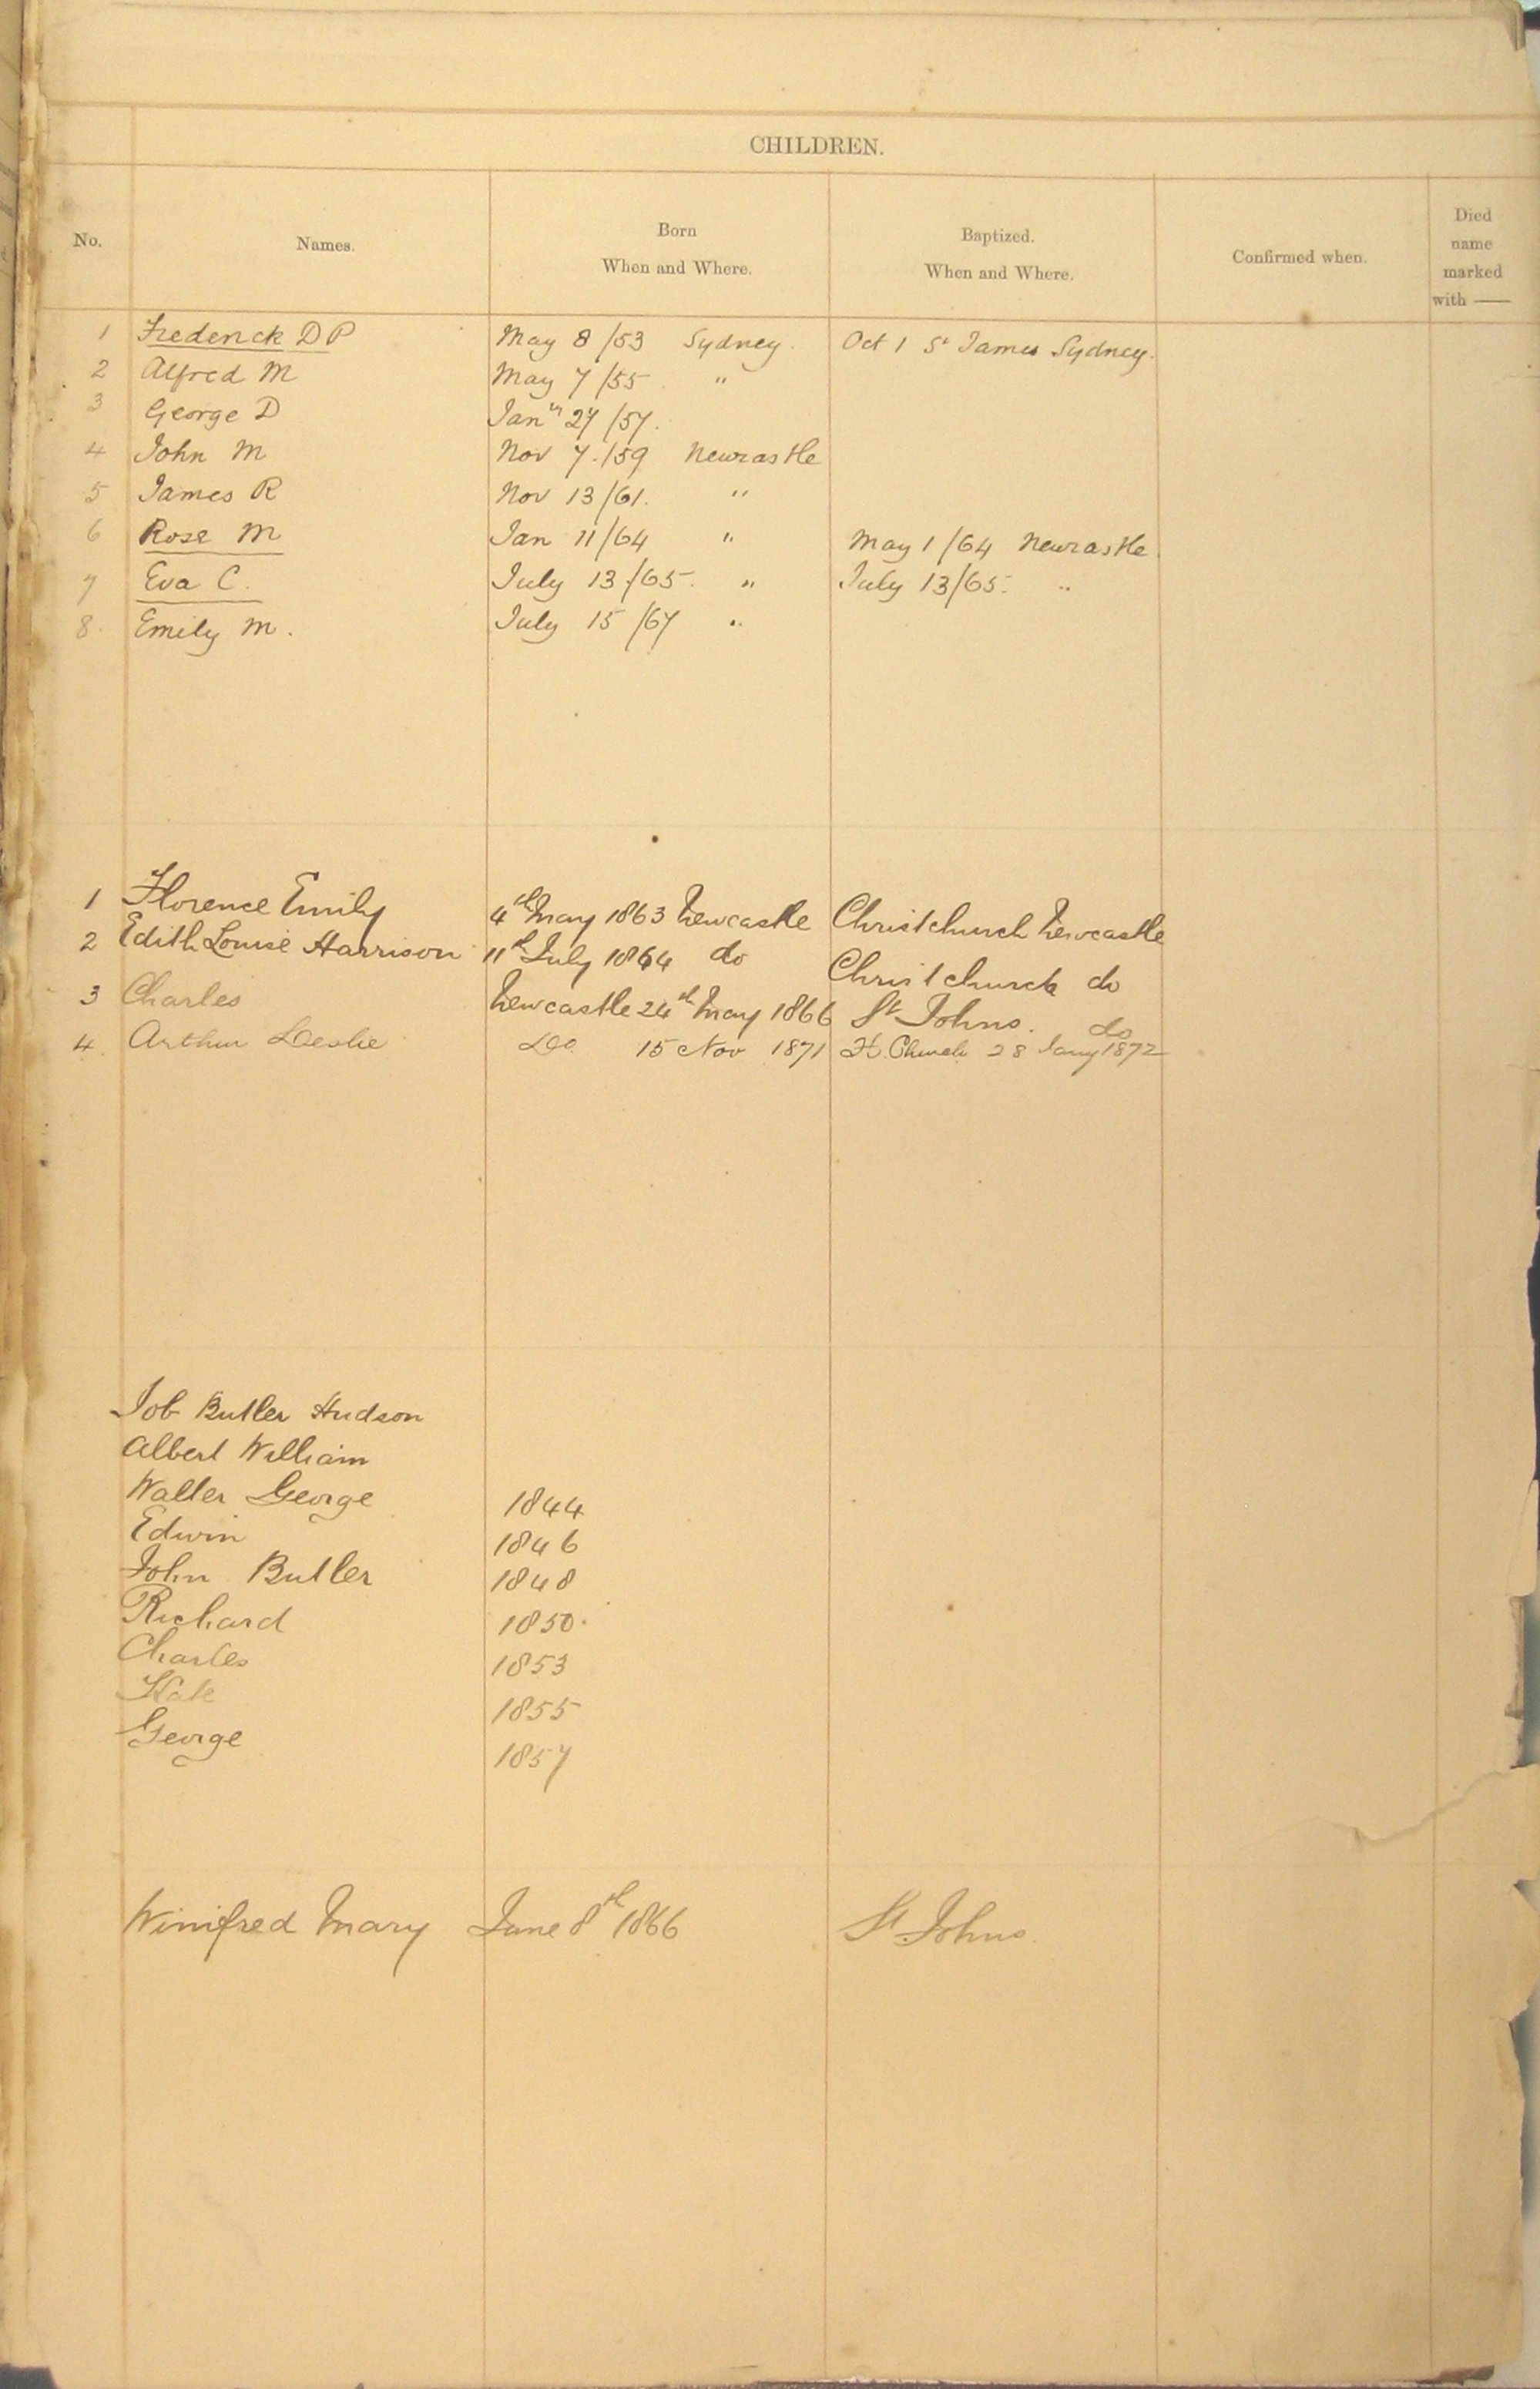 CHILDREN.
No. Names. Born When and Where. Baptized. When and Where. Confirmed when. Died name marked with —
1 Frederick D P May 8 /53 Sydney. Oct 1 St James Sydney.
2 Alfred M May 7 /55. "
3 George D Jany 27 /57.
4 John M Nov 7./59 Newcastle
5 James R Nov 13/61. "
6 Rose M Jan 11/64 " May 1/64 Newcastle
7 Eva C. July 13/65. " July 13/65. "
8. Emily M. July 15 /67 "
1 Florence Emily 4th May 1863 Newcastle Christchurch Newcastle
2 Edith Louise Harrison 11th July 1864 do Christchurch do
3 Charles Newcastle 24th May 1866 St Johns. do
4. Arthur Leslie Do 15 Nov 1871 H. Church 28 Jany 1872
Job Butler Hudson
Albert William
Walter George 1844
Edwin 1846
John Butler 1848
Richard 1850.
Charles 1853
Kate 1855
George 1857
Winifred Mary June 8th 1866 St Johns.